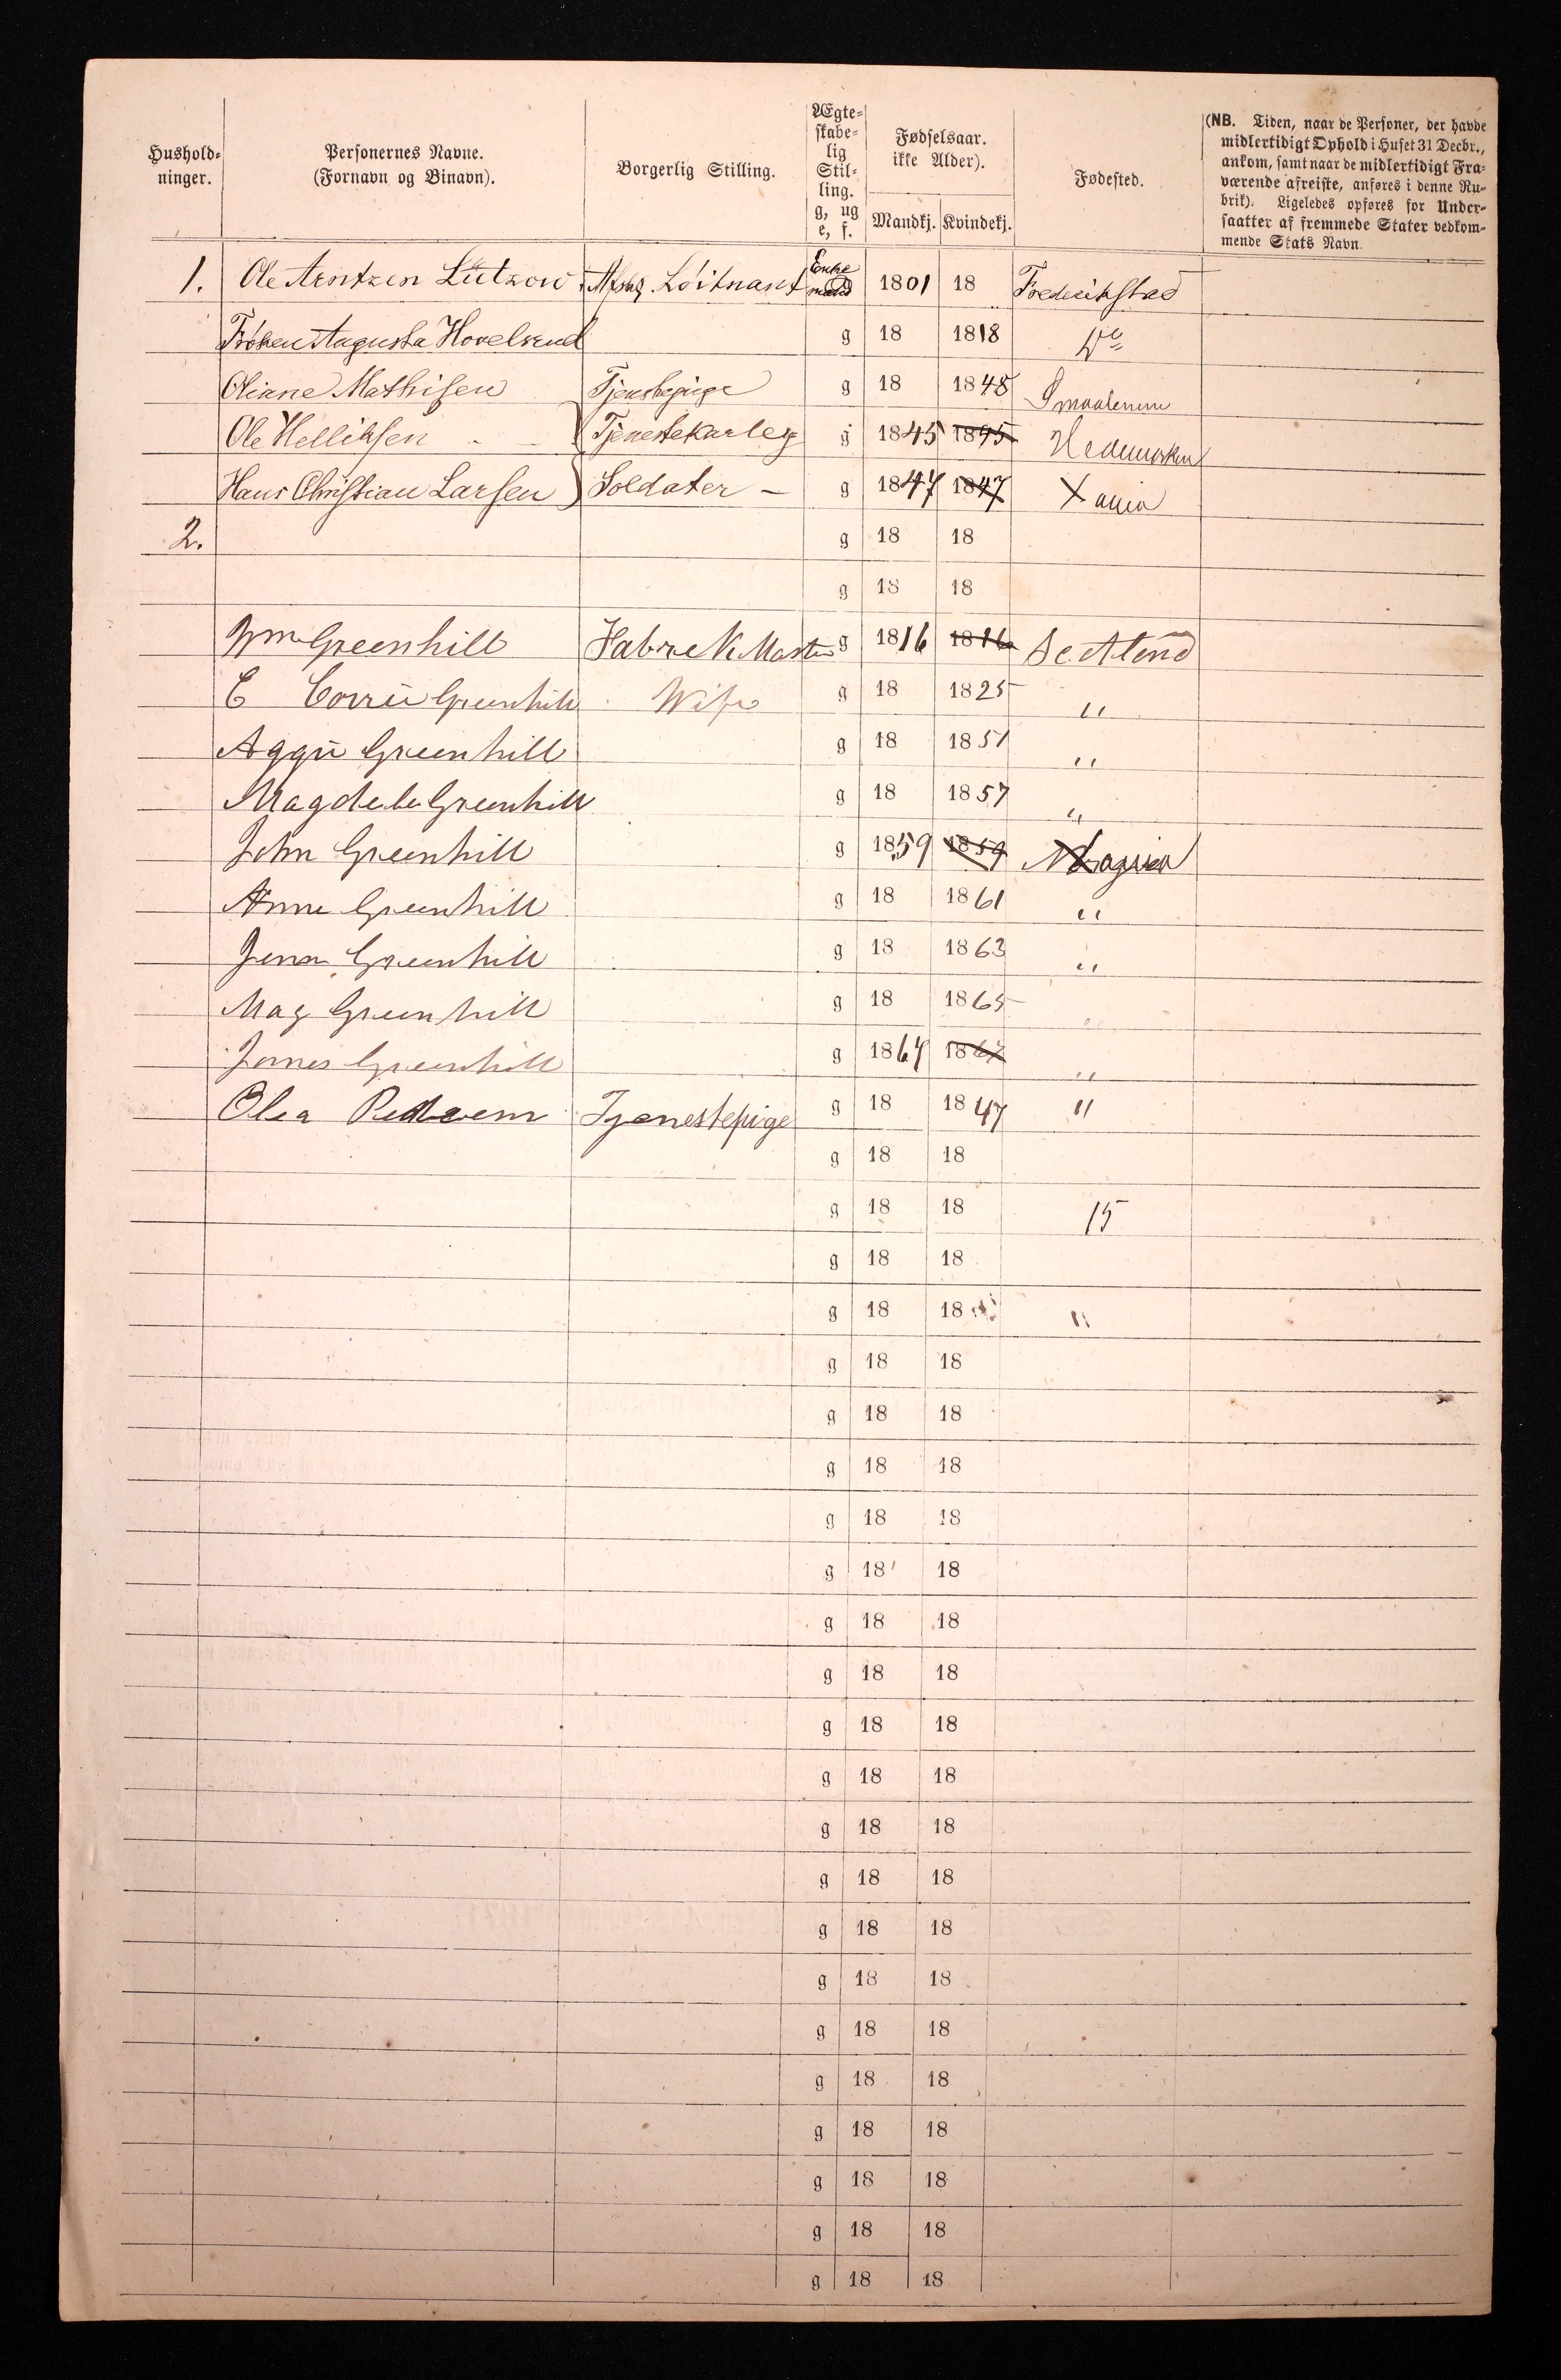 Hushold-
ninger.
Personernes Navne.
(Fornavn og Binavn).
Borgerlig Stilling.
Ægte-
skabe-
lig
Stil-
ling.
g, ug
e, f.
Fødselsaar.
ikke Alder).
Mandkj. Kvindekj.
Fødested.
(NB. Tiden, naar de Personer, der havde
midlertidigt Ophold i Huset 31 Decbr.,
ankom, samt naar de midlertidigt Fra-
værende afreiste, anføres i denne Ru-
brik). Ligeledes opføres for Under-
saatter af fremmede Stater vedkom-
mende Stats Navn.
1. Ole Arntzen Lützow Løitnant Enke mand 1801 18 Frederikstad
Frøken Augusta Hovelsrud g 18 1818 Do
Oliane Mathisen Tjenstepige g 18 1848 Smaalenene
Ole Helliksen Tjenestekarle g 1845 1845 Hedemarken
Hans Christian Larsen Soldater - g 1847 1847 Xania
2. g 18 18
g 18 18
Wm Greenhill g 1816 1816
E Corrie Greenhill Wife g 18 1825 "
Aggie Greenhill g 18 1851 "
Magdele Greenhill g 18 1857 "
John Greenhill g 1859 1859
Anne Greenhill g 18 1861 "
Jena Greenhill g 18 1863 "
Mag Greenhill g 18 1865 "
James Greenhill g 1867 1867 "
Olea Tjenestepige g 18 1847 "
g 18 18
g 18 18 15
g 18 18
g 18 18 "
g 18 18
g 18 18
g 18 18
g 18 18
g 18 18
g 18 18
g 18 18
g 18 18
g 18 18
g 18 18
g 18 18
g 18 18
g 18 18
g 18 18
g 18 18
g 18 18
g 18 18
g 18 18
g 18 18